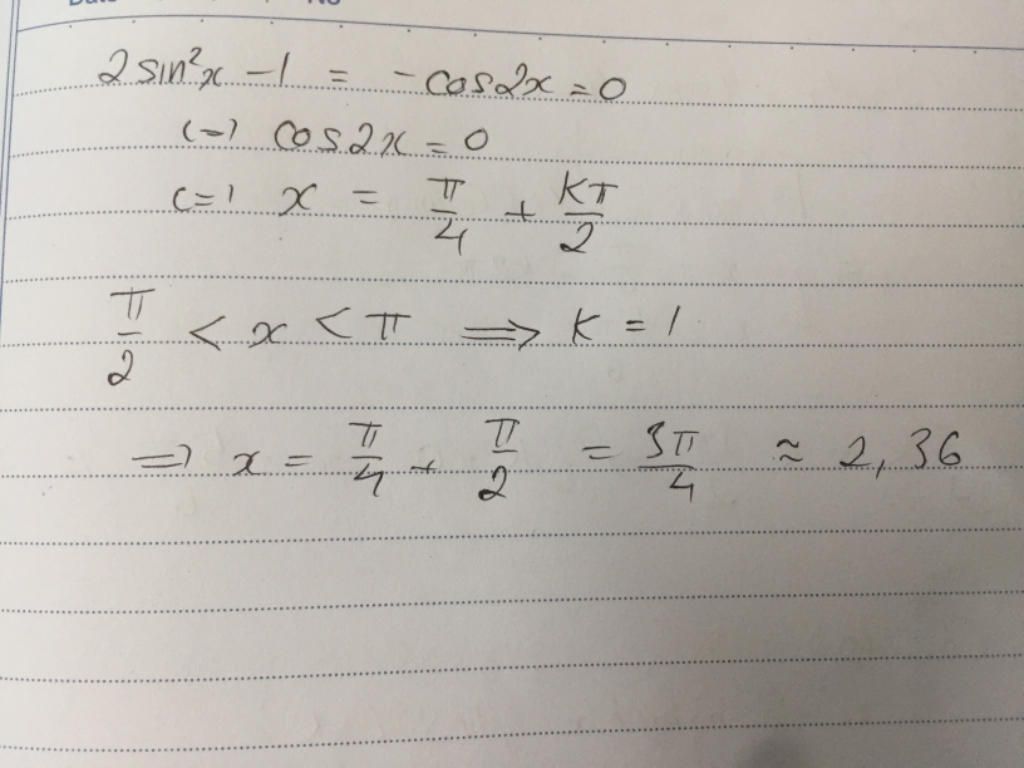 Date No
2 sin²x - 1 = - cos2x = 0
(=) cos2x = 0
(=) x = π/4 + Kπ/2
π/2 < x < π ⟹ K = 1
=> x = π/4 + π/2 = 3π/4 ≈ 2,36